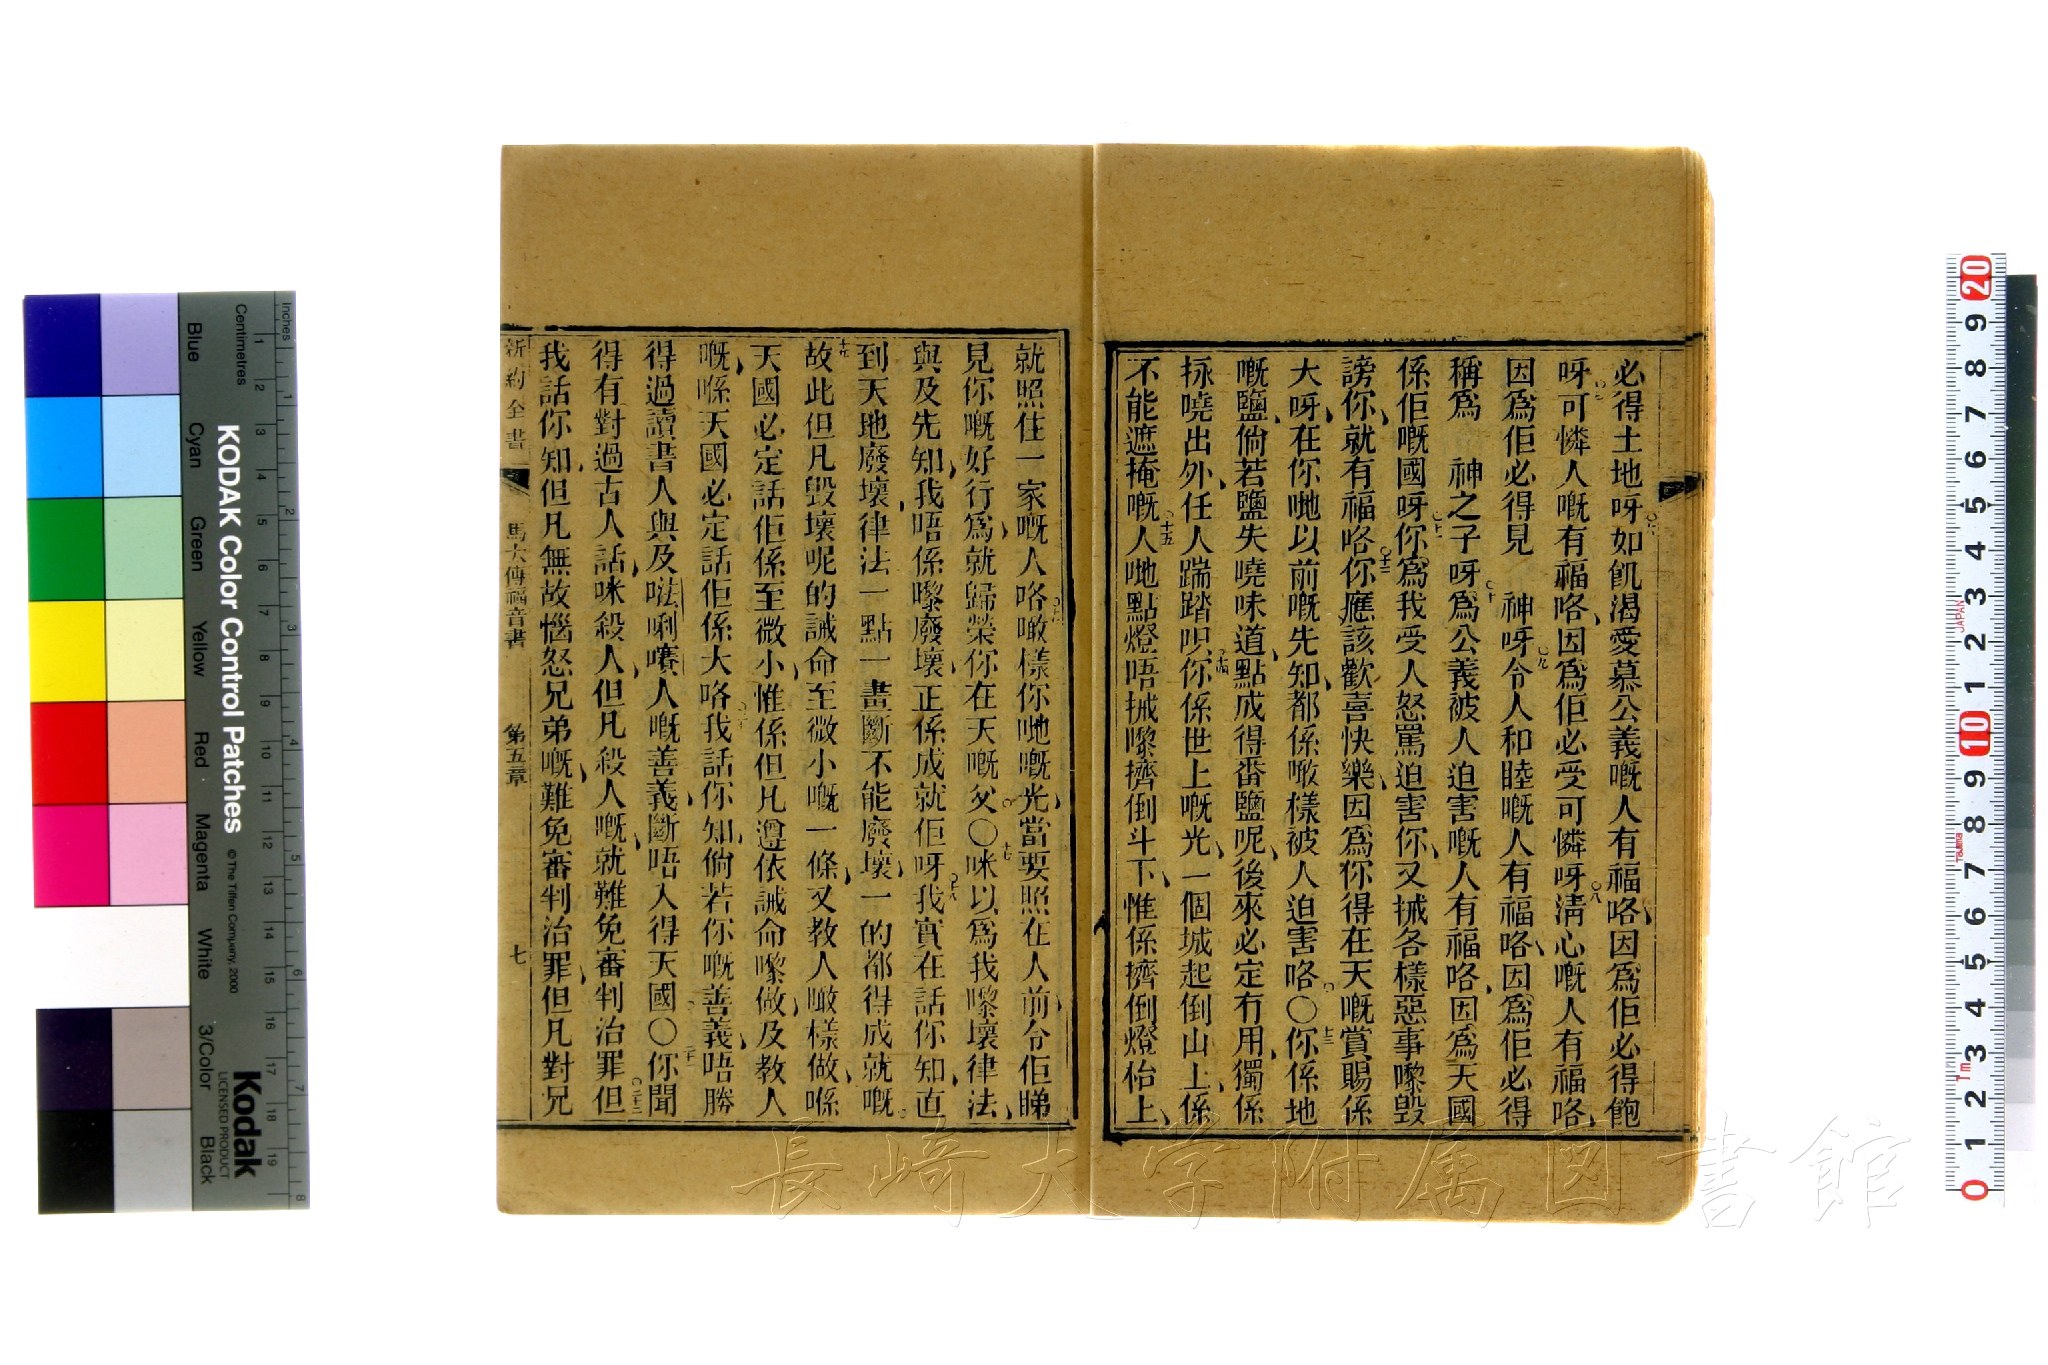 必得土地呀如飢渴愛慕公義嘅人有福咯因爲佢必得飽
呀可憐人嘅有福咯因爲佢必受可憐呀淸心嘅人有福咯
因爲佢必得見 神呀令人和睦嘅人有福咯因爲佢必得
稱爲 神之子呀爲公義被人迫害嘅人有福咯因爲天國
係佢嘅國呀你爲我受人怒罵迫害你又搣各樣惡事嚟毀
謗你就有福咯你應該歡喜快樂因爲你得在天嘅賞賜係
大呀在你哋以前嘅先知都係噉樣被人迫害咯〇你係地
嘅鹽倘若鹽失嘵味道點成得番鹽呢後來必定冇用獨係
捈嘵出外任人踹踏呮你係世上嘅光一個城起倒山上係
不能遮掩嘅人哋點燈唔搣嚟擠倒斗下惟係擠倒燈佁上
就照住一家嘅人咯噉樣你哋嘅光當要照在人前令佢睇
見你嘅好行爲就歸榮你在天嘅父〇咪以爲我嚟壞律法
與及先知我唔係嚟廢壞正係成就佢呀我實在話你知直
到天地廢壞律法一點一畫斷不能廢壞一的都得成就嘅
故此但凡毀壞呢的誡命至微小嘅一條又教人噉樣做喺
天國必定話佢係至微小惟係但凡遵依誡命嚟做及教人
嘅喺天國必定話佢係大咯我話你知倘若你嘅善義唔勝
得過讀書人與及𠵽唎㘔人嘅善義斷唔入得天國〇你聞
得有對過古人話咪殺人但凡殺人嘅就難免審判治罪但
我話你知但凡無故惱怒兄弟嘅難免審判治罪但凡對兄
新約全書
馬太傳福音書
第五章
七
長崎大学附属図書館
Inches
Centimetres
KODAK Color Control Patches
© The Tiffen Company, 2000
Kodak
LICENSED PRODUCT
Blue
Cyan
Green
Yellow
Red
Magenta
White
3/Color
Black
JAPAN